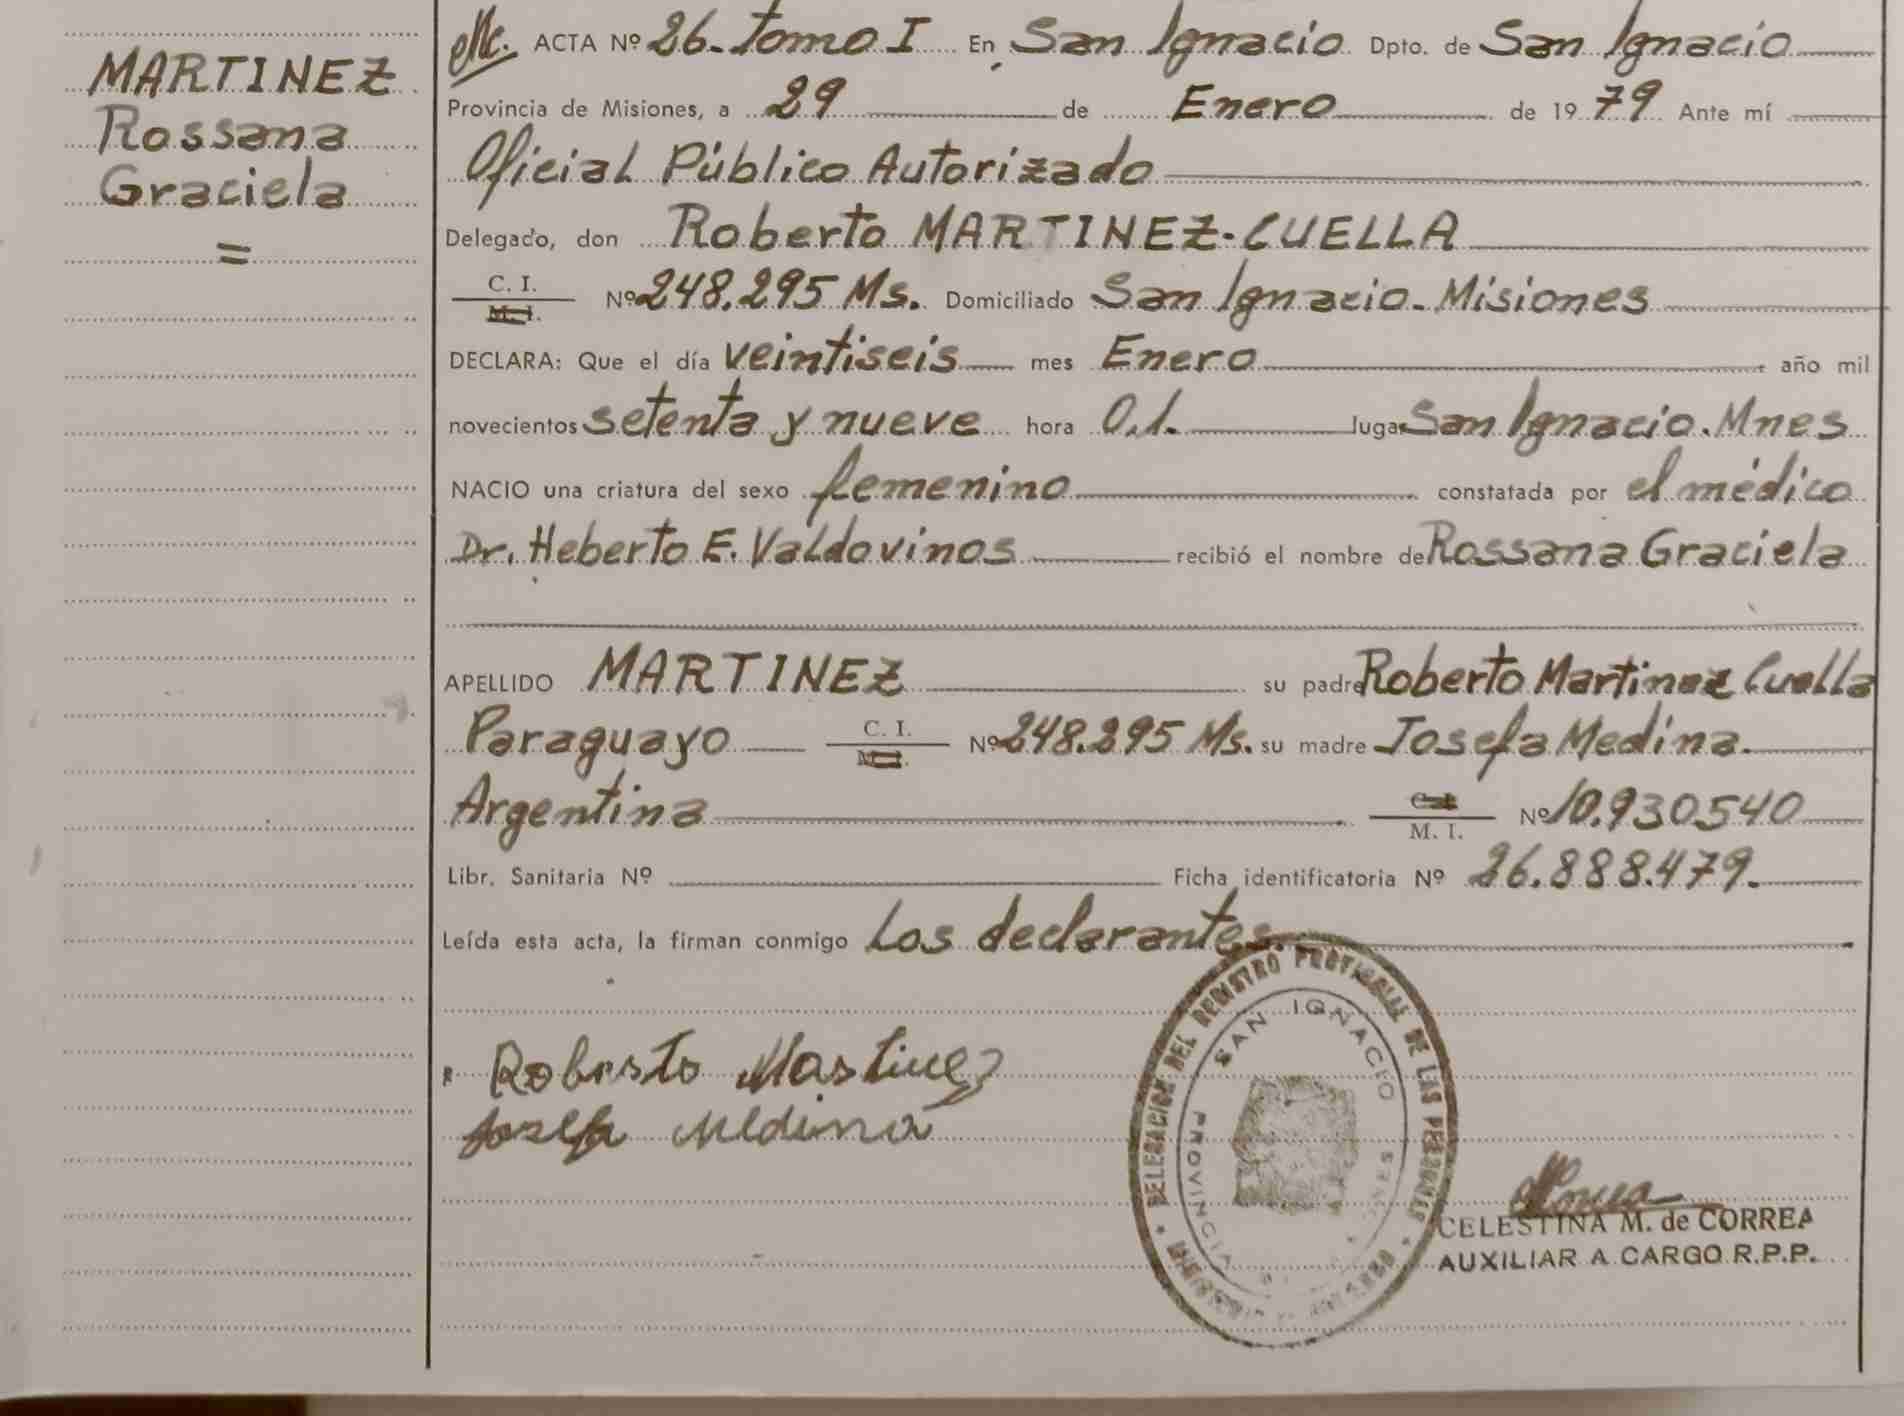 MARTINEZ
Rossana
Graciela
=
ACTA Nº 26. Tomo I En San Ignacio Dpto. de San Ignacio
Provincia de Misiones, a 29 de Enero de 1979 Ante mí
Oficial Público Autorizado
Delegado, don Roberto MARTINEZ-CUELLA
C. I.
M. I. Nº 248.295 Ms. Domiciliado San Ignacio. Misiones
DECLARA: Que el día veintiseis mes Enero año mil
novecientos setenta y nueve hora 0.1. lugar San Ignacio. Mnes
NACIO una criatura del sexo femenino constatada por el médico
Dr. Heberto E. Valdovinos recibió el nombre de Rossana Graciela
APELLIDO MARTINEZ su padre Roberto Martinez Cuella
Paraguayo C. I. Nº 248.295 Ms. su madre Josefa Medina.
M. I.
Argentina C. I. Nº 10.930540
M. I.
Libr. Sanitaria Nº Ficha identificatoria Nº 26.888.479.
Leída esta acta, la firman conmigo Los declarantes.
Roberto Martinez
Josefa Medina
DELEGACION DEL REGISTRO PROVINCIAL DE LAS PERSONAS
SAN IGNACIO
PROVINCIA
CELESTINA M. de CORREA
AUXILIAR A CARGO R.P.P.